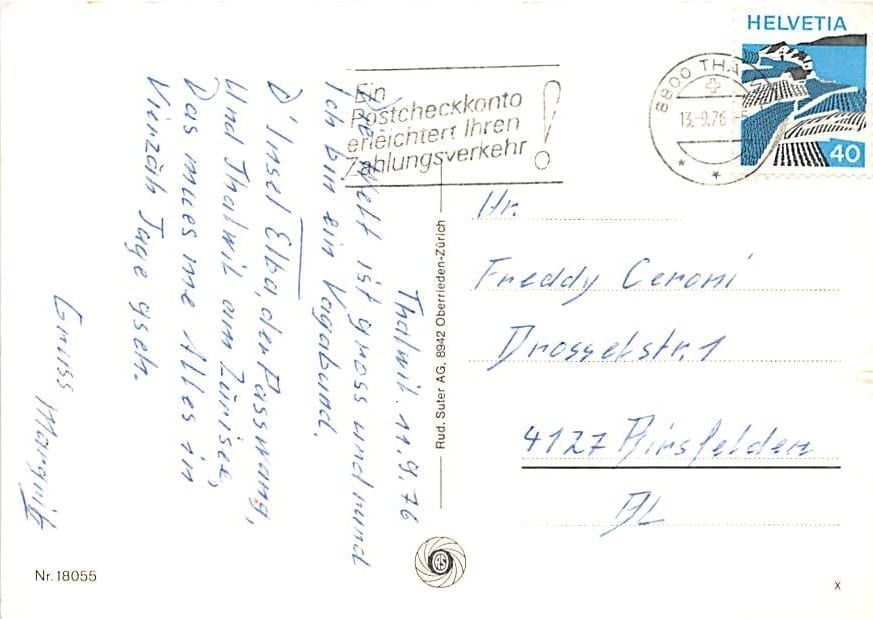 HELVETIA
40
8800 THA
13.-9.76
Ein
Postcheckkonto
erleichtert Ihren
Zahlungsverkehr !
Thalwil. 11.9.76
Die Welt ist gross und rund
Ich bin ein Vagabund.
D'Insel Elba, der Passwang,
Und Thalwil am Zürisee,
Das mues me Alles in
Vierzäh Tage gseh.
Gruss Margrit
Rud. Suter AG, 8942 Oberrieden-Zürich
Hr.
Freddy Ceroni
Drosselstr. 1
4127 Birsfelden
BL
Nr. 18055
X